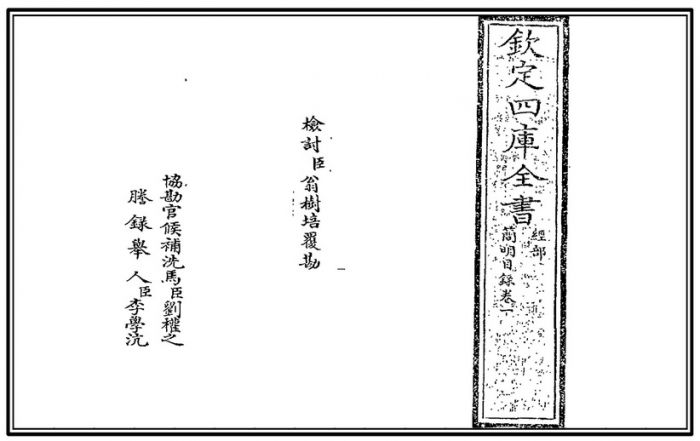 欽定四庫全書
經部
簡明目錄卷一
檢討臣翁樹培覆勘
協勘官候補洗馬臣劉權之
謄錄舉人臣李學沆